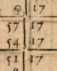 9 17
57 17
54 17
51 17